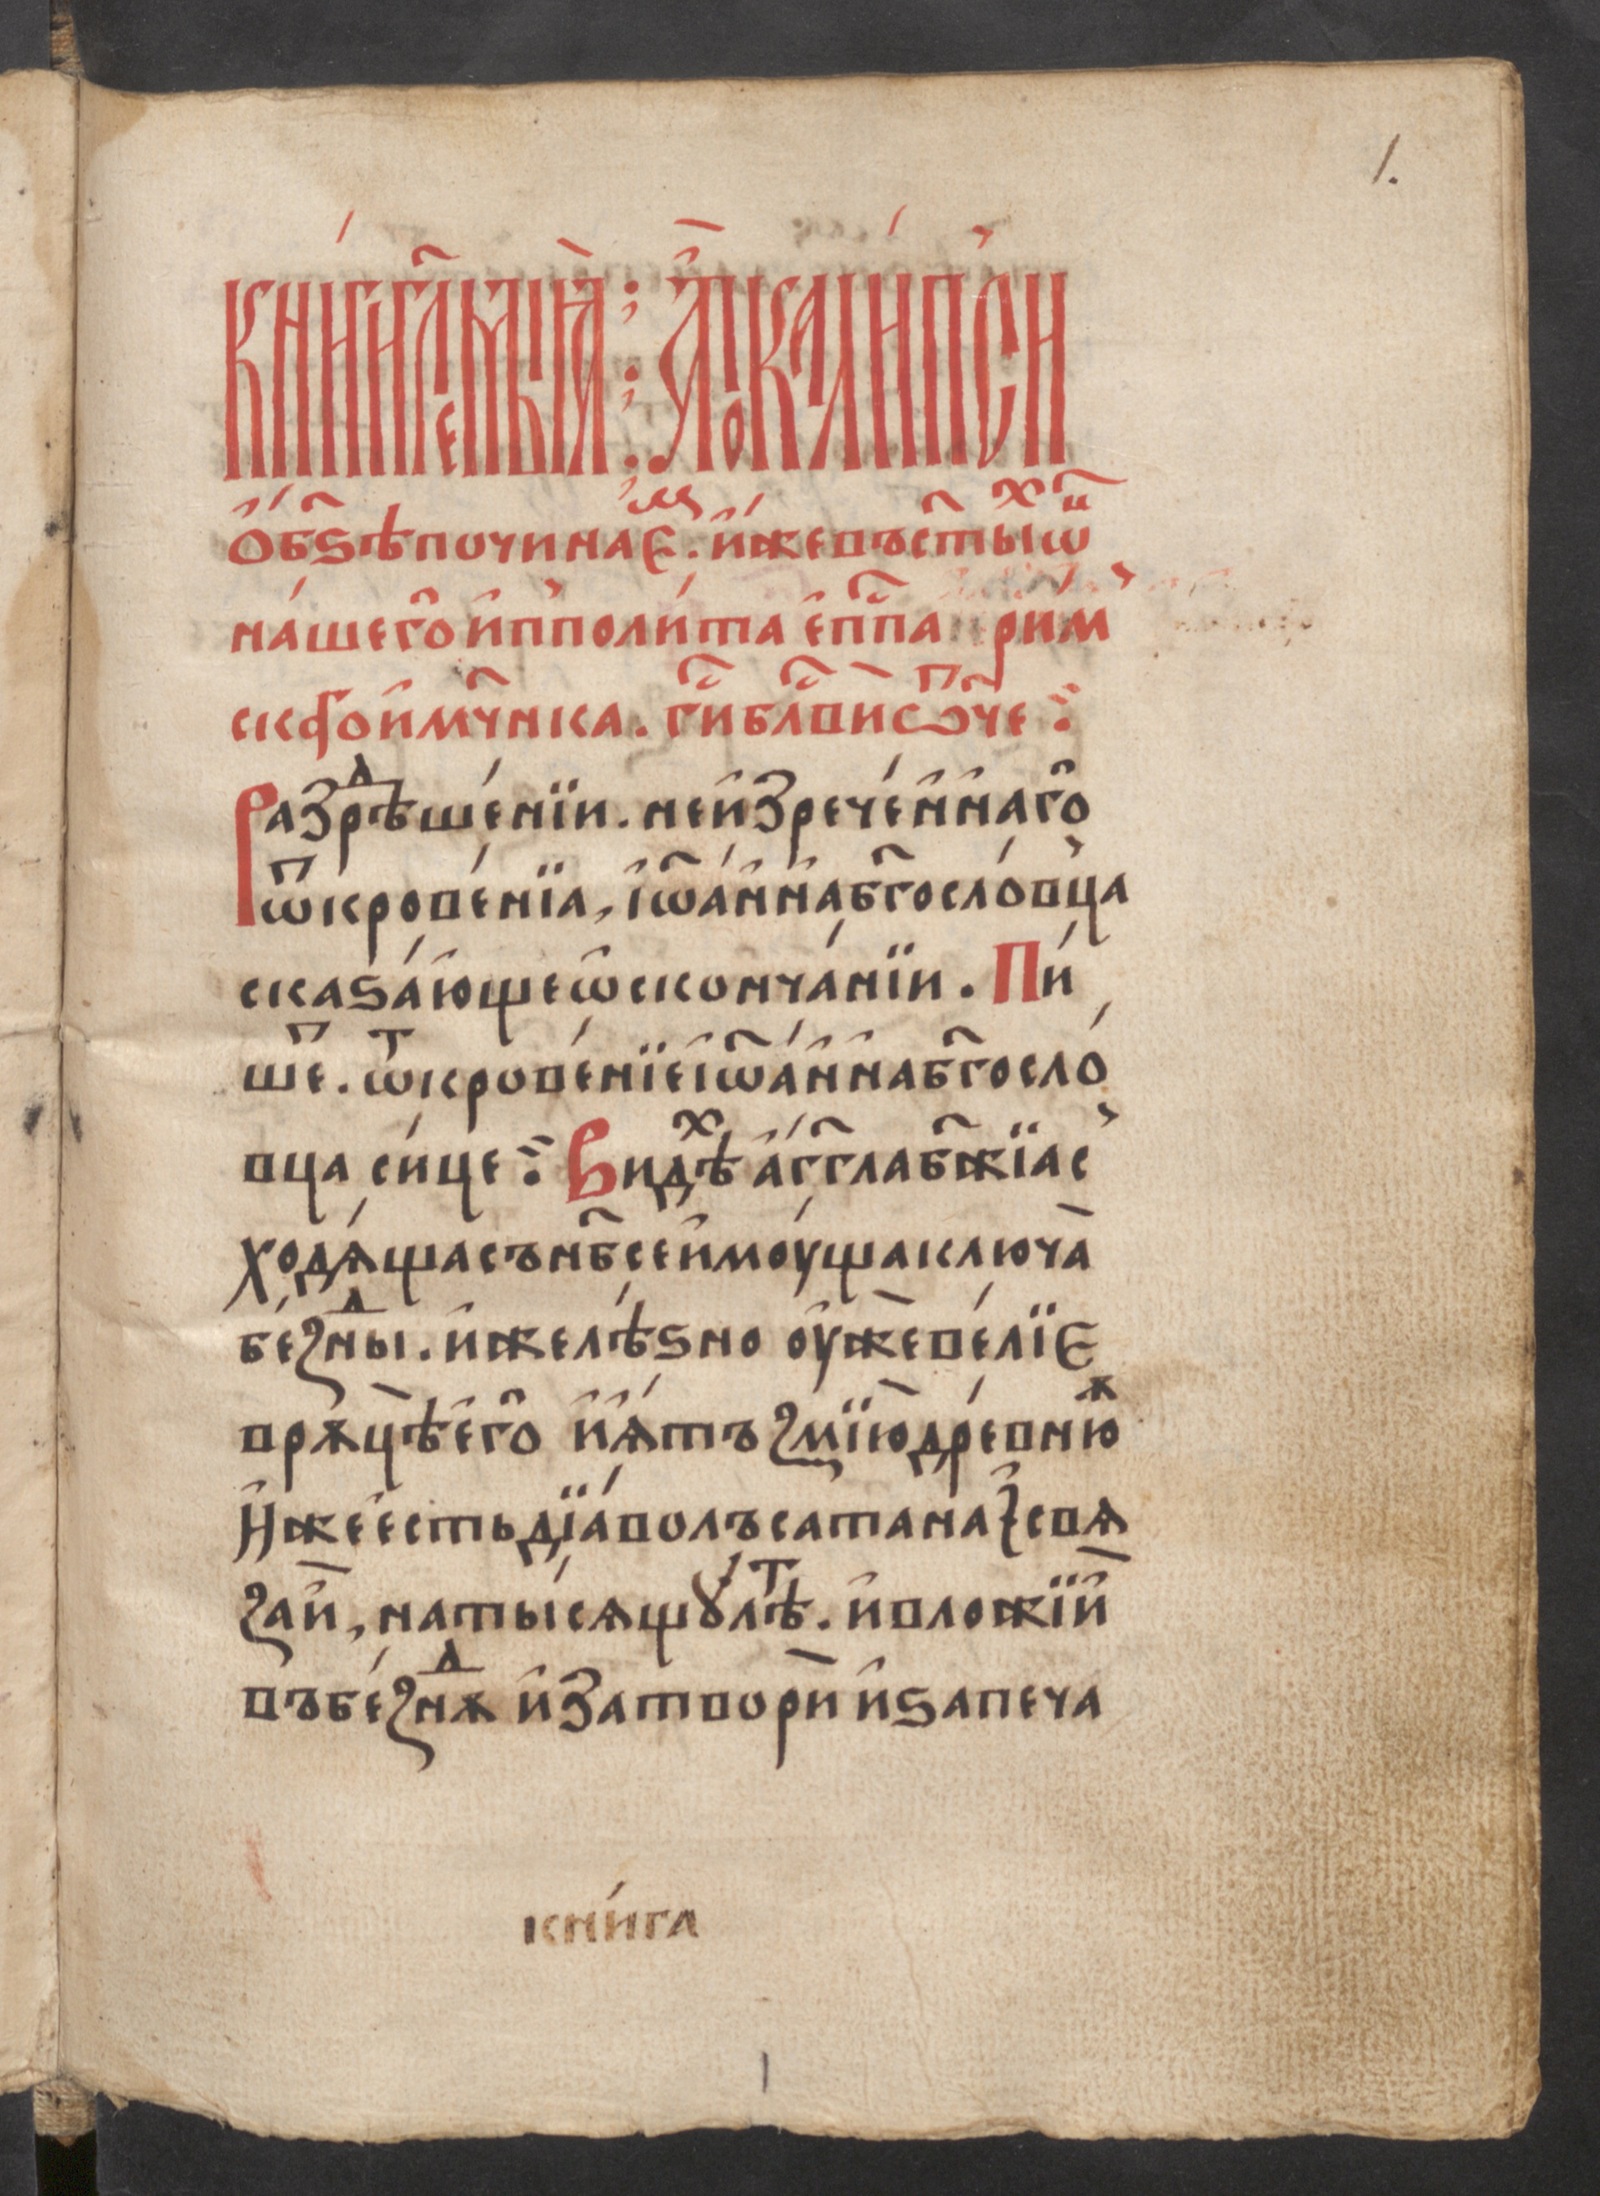 1.
КНИ́ГИ ГЛ҃ЕМЫѦ : А҆ПОКАЛИ́ПСИ
Ѻ҆ б҃ѕѣ почина́еⷨ . и҆́же въ ст҃ыⷯ ѿ
на́шего҆ и҆пполи́та є҆пп҃а ри́м
скⷢ҇о и҆ мч҃нка . гн҃ бл҃ви ѿч҃е :
Раꙁⷣрѣше́нїи . неи҆ꙁрече́ннаго҆
ѿкрове́нїа , і҆ѡ҃а́нна бг҃осло́вца
скаꙃа́ющеѡ҆сконча́нїи . Пи́
ше҆ . ѿкрове́нїе і҆ѡ҃а́нна бг҃осло́
вца си́це : Видѣⷯ а҆́гг҃ла бж҃їа с̾
ходѧ́ща съ нб҃се и҆моу́ща ключа̀
бе́ꙁⷣны . и҆ желѣ́ꙃно оу҆́же ве́лїе
врѫцѣ̀ е҆го҆ и҆ ѧ҆́тъ ꙁмїю̀ дре́внюю
И҆́же е҆сть дїа́волъ сатана̀ и҆ свѧ
ꙁа и҆̀ , на ты́сѧщꙋ лѣⷮ . и҆ вложѝ и҆̀
въ бе́ꙁⷣнѫ и҆ ꙁатворѝ и҆ ꙃапеча
кни́га